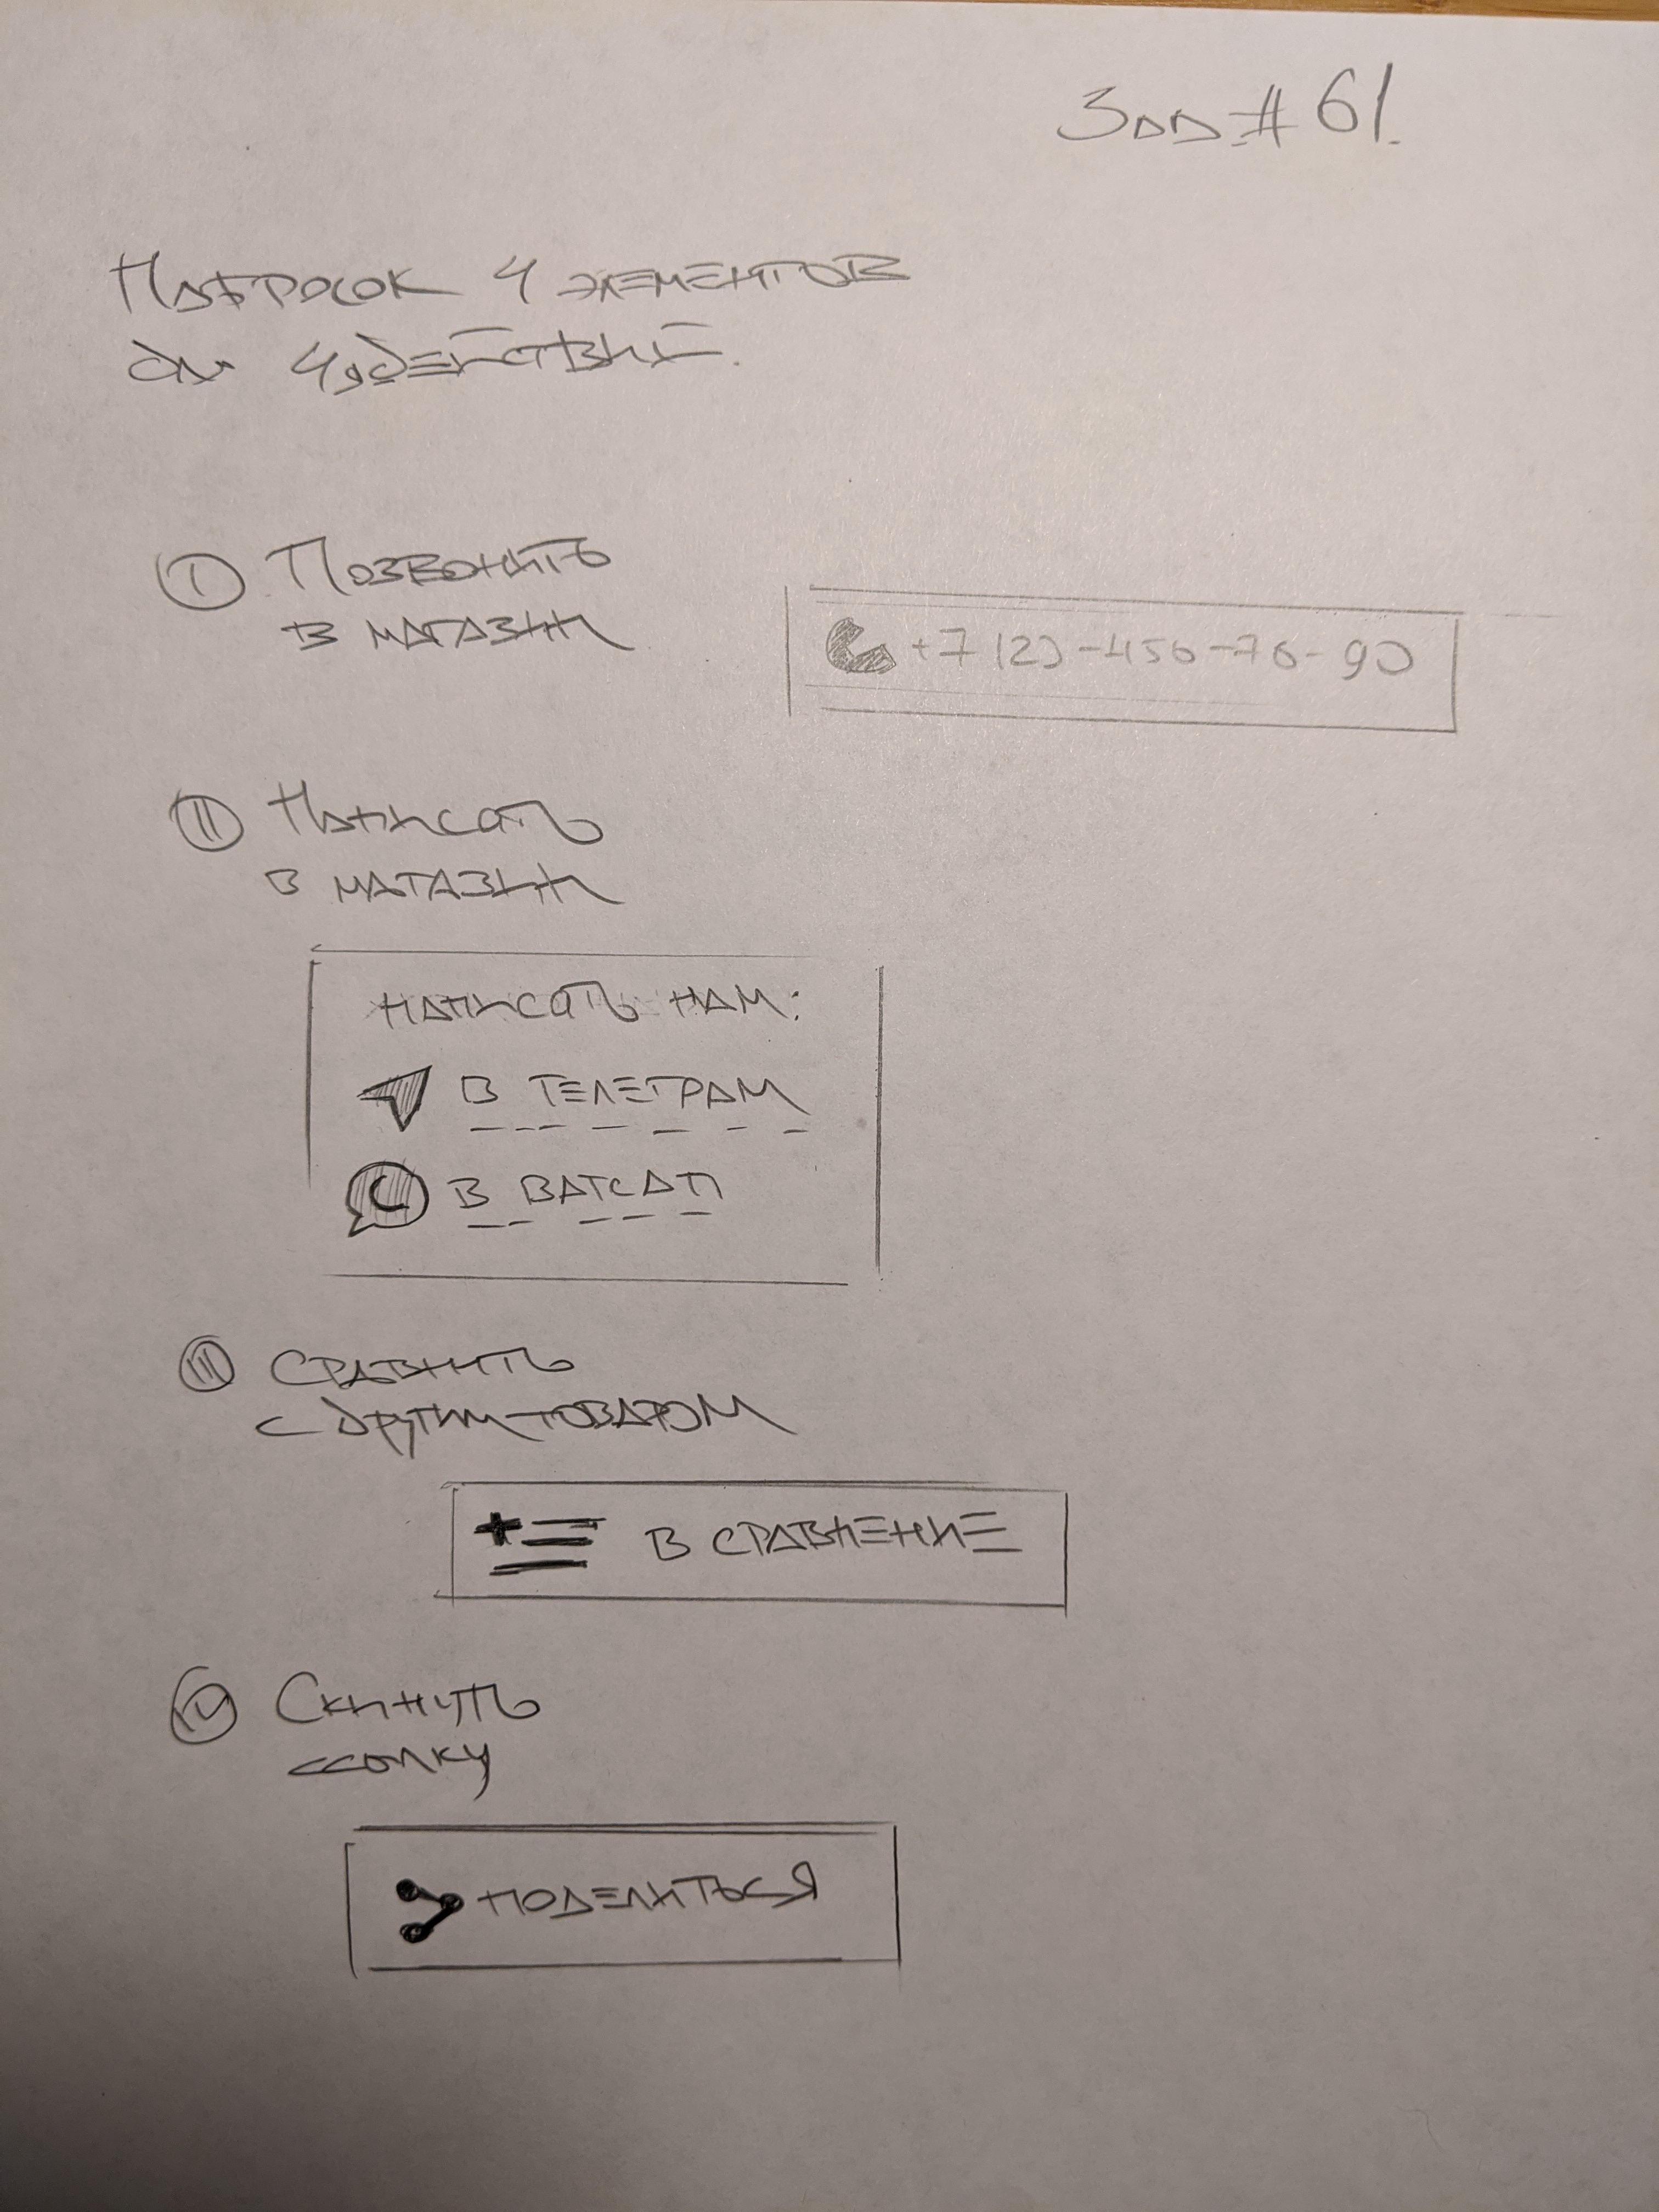 Зад #61.
Набросок 4 элементов
для 4х действий.
I Позвонить
в магазин
+7 (23)-456-78-90
II Написать
в магазин
написать нам:
в телеграм
в ватсап
III Сравнить
с другим товаром
+ в сравнение
IV Скинуть
ссылку
поделиться